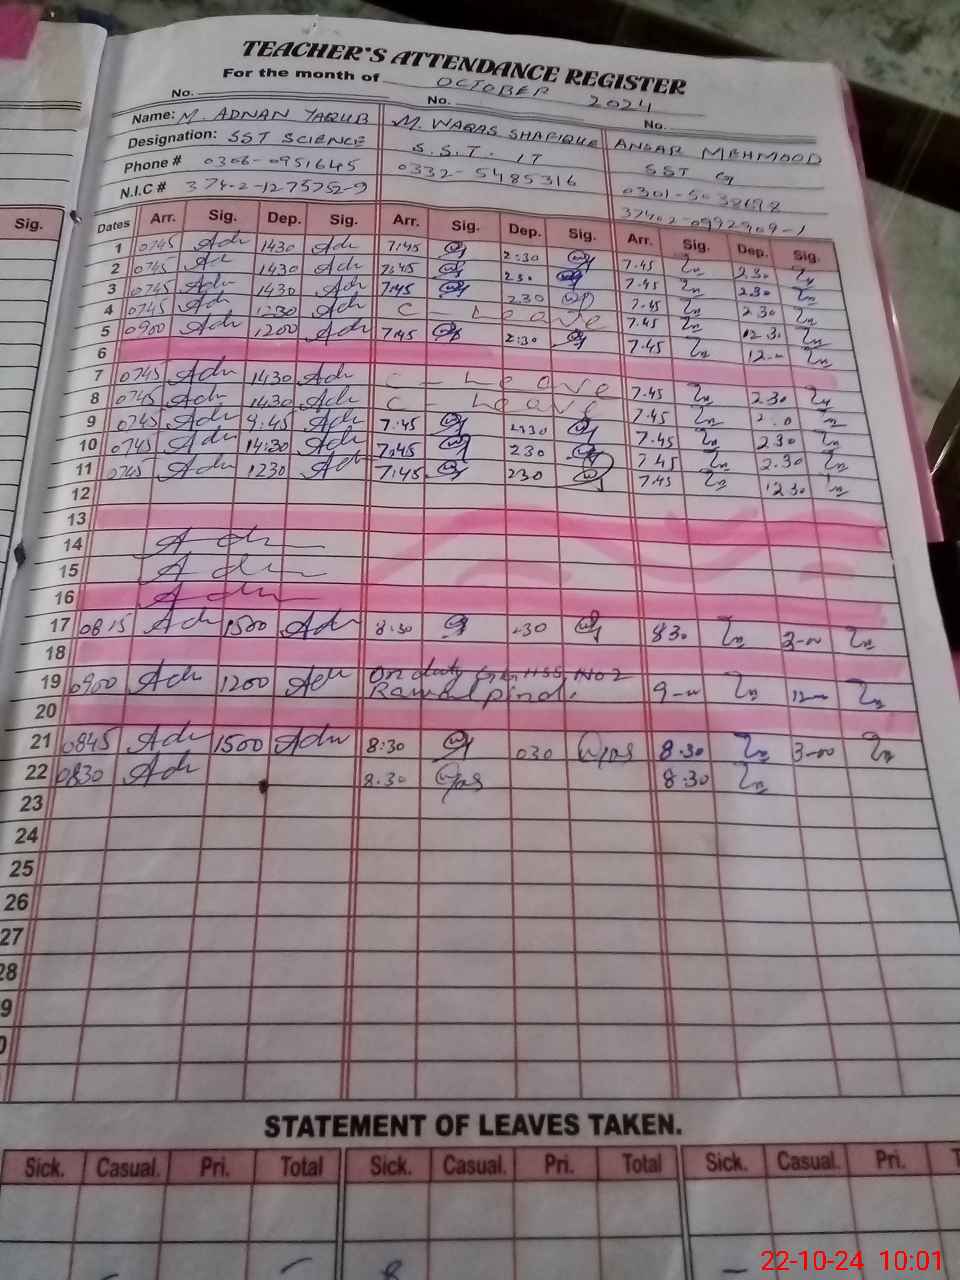 TEACHER'S ATTENDANCE REGISTER
For the month of OCTOBER 2024
No. No. No.
Name: M. ADNAN YAQUB M. WAQAS SHAFIQUE ANSAR MEHMOOD
Designation: SST SCIENCE S.S.T. IT SST G
Phone # 0306-0951645 0332-5485316 0301-5038698
N.I.C # 37402-0992909-1
Sig.
Dates Arr. Sig. Dep. Sig. Arr. Sig. Dep. Sig. Arr. Sig. Dep. Sig.
1 0745 Adn 1430 Adn 7:45 2:30 7.45 2.30
2 0745 Ad 1430 Adn 7:45 2:30 7.45 2.30
3 0745 Adn 1430 Adn 7:45 230 7.45 2.30
4 0745 Adn 1230 Adn C - Leave 7.45 12.30
5 0900 Adn 1200 Adn 7:45 2:30 7.45 12-
6
7 0745 Adn 1430 Adn C - Leave 7.45 2.30
8 0745 Adn 1430 Adn C - Leave 7.45
9 0745 Adn 9:45 Adn 7:45 230 7.45 2.30
10 0745 Adn 14:30 Adn 7:45 230 7.45 2.30
11 0745 Adn 1230 Adn 7:45 230 7.45 12.30
12
13
14 Adn
15 Adn
16 Adn
17 0815 Adn 1500 Adn 8:30 830
18
19 0900 Adn 1200 Adn On duty HSS No 2
Rawalpindi
20
21 0845 Adn 1500 Adn 8:30 030 8.30 3-00
22 0830 Adn 8.30 8:30
23
24
25
26
27
28
9
0
STATEMENT OF LEAVES TAKEN.
Sick. Casual. Pri. Total Sick. Casual. Pri. Total Sick. Casual. Pri. T
22-10-24 10:01